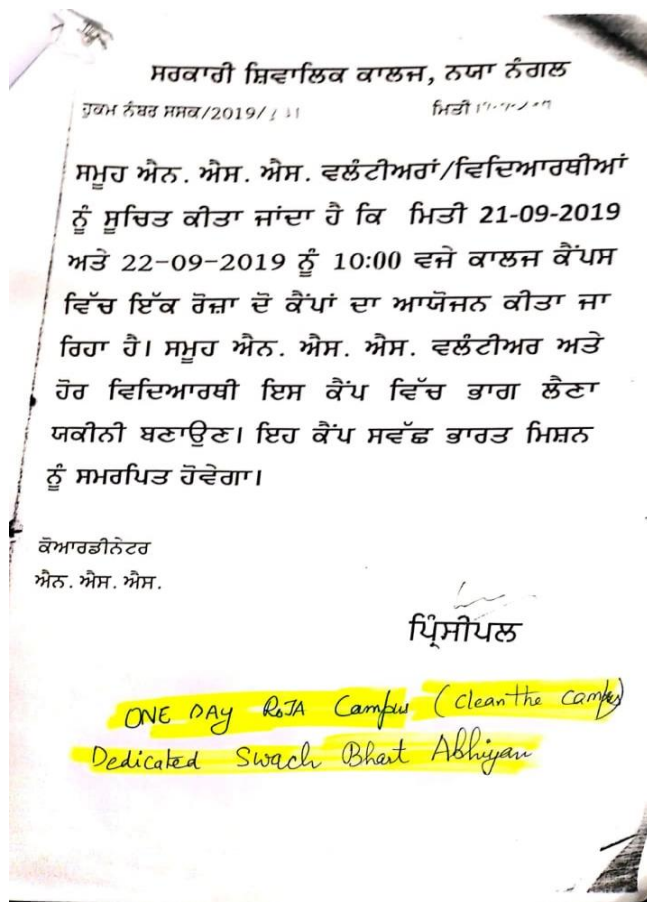 ਸਰਕਾਰੀ ਸ਼ਿਵਾਲਿਕ ਕਾਲਜ, ਨਯਾ ਨੰਗਲ
ਹੁਕਮ ਨੰਬਰ ਸਸਕ/2019/
ਮਿਤੀ
ਸਮੂਹ ਐਨ. ਐਸ. ਐਸ. ਵਲੰਟੀਅਰਾਂ/ਵਿਦਿਆਰਥੀਆਂ
ਨੂੰ ਸੂਚਿਤ ਕੀਤਾ ਜਾਂਦਾ ਹੈ ਕਿ ਮਿਤੀ 21-09-2019
ਅਤੇ 22-09-2019 ਨੂੰ 10:00 ਵਜੇ ਕਾਲਜ ਕੈਂਪਸ
ਵਿੱਚ ਇੱਕ ਰੋਜ਼ਾ ਦੋ ਕੈਂਪਾਂ ਦਾ ਆਯੋਜਨ ਕੀਤਾ ਜਾ
ਰਿਹਾ ਹੈ। ਸਮੂਹ ਐਨ. ਐਸ. ਐਸ. ਵਲੰਟੀਅਰ ਅਤੇ
ਹੋਰ ਵਿਦਿਆਰਥੀ ਇਸ ਕੈਂਪ ਵਿੱਚ ਭਾਗ ਲੈਣਾ
ਯਕੀਨੀ ਬਣਾਉਣ। ਇਹ ਕੈਂਪ ਸਵੱਛ ਭਾਰਤ ਮਿਸ਼ਨ
ਨੂੰ ਸਮਰਪਿਤ ਹੋਵੇਗਾ।
ਕੋਆਰਡੀਨੇਟਰ
ਐਨ. ਐਸ. ਐਸ.
ਪ੍ਰਿੰਸੀਪਲ
ONE DAY ROJA Campus (clean the campus)
Dedicated Swach Bhart Abhiyan